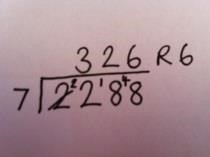 326 R6
7 2²2¹8⁴8